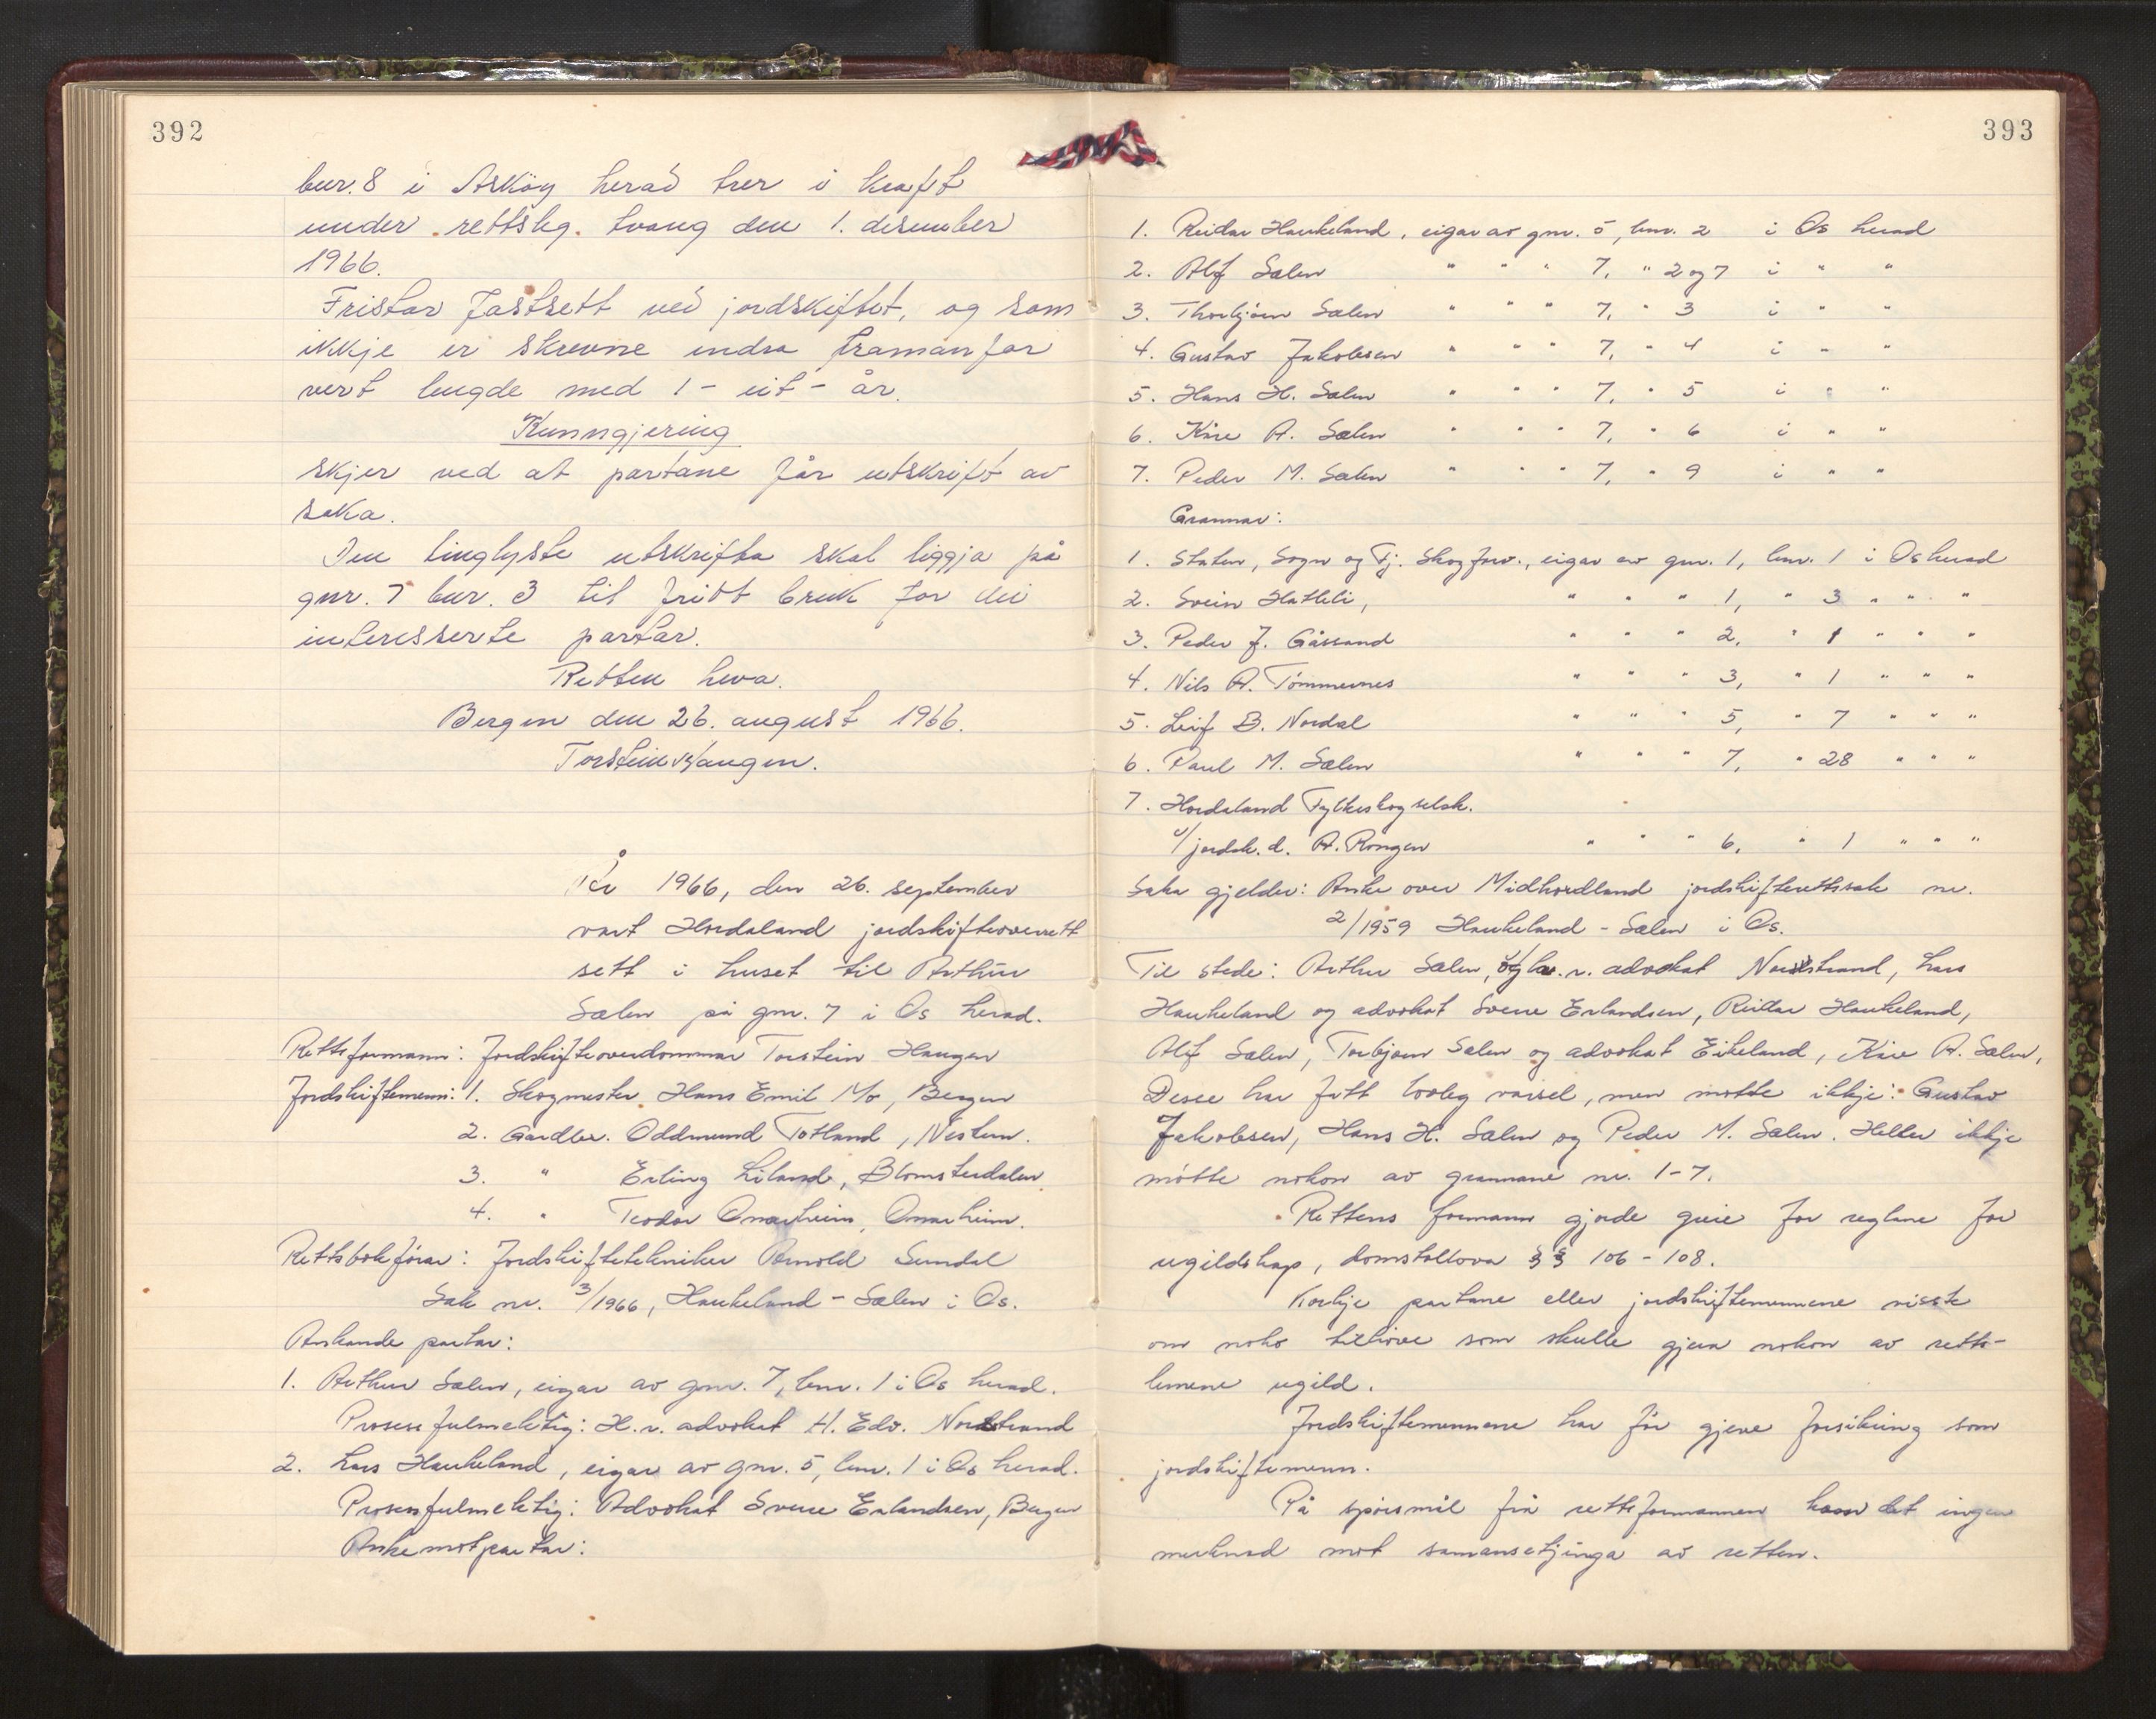 392
bnr. 8 i Askøy herad trer i kraft
under rettsleg tvang den 1. desember
1966.
Fristar fastsett ved jordskiftet, og som
ikkje er skrevne endra framanfor
vert lengde med 1 - eit - år.
Kunngjering
skjer ved at partane får utskrift av
saka.
Den tinglyste utskrifta skal liggja på
gnr. 7 bnr. 3 til fritt bruk for dei
interesserte partar.
Retten heva.
Bergen den 26. august 1966.
Torstein Haugen.
År 1966, den 26. september
vart Hordaland jordskifteoverrett
sett i huset til Arthur
Sælen på gnr. 7 i Os herad.
Rettsformann: Jordskifteoverdommar Torstein Haugen
Jordskiftemenn: 1. Skogmester Hans Emil Mo, Bergen
2. Gardbr. Oddmund Totland, Nestun.
3. " Erling Liland, Blomsterdalen
4. " Teodor Omarheim, Omarheim.
Rettsbokførar: Jordskiftetekniker Arnold Sundal
Sak nr. 3/1966, Haukeland - Sælen i Os.
Ankande partar:
1. Arthur Sælen, eigar av gnr. 7, bnr. 1 i Os herad.
Prosessfulmektig: H.r. advokat H. Edv. Nordstrand
2. Lars Haukeland, eigar av gnr. 5, bnr. 1 i Os herad.
Prosessfulmektig: Advokat Sverre Erlandsen, Bergen
Ankemotpartar:
393
1. Reidar Haukeland, eigar av gnr. 5, bnr. 2 i Os herad
2. Alf Sælen " " " 7, " 2 og 7 i " "
3. Thorbjørn Sælen " " " 7, " 3 i " "
4. Gustav Jakobsen " " " 7, " 4 i " "
5. Hans H. Sælen " " " 7, " 5 i " "
6. Kåre A. Sælen " " " 7, " 6 i " "
7. Peder M. Sælen " " " 7, " 9 i " "
Grannar:
1. Staten, Sogn og Fj. Skogforv., eigar av gnr. 1, bnr. 1 i Os herad
2. Svein Hatleli, " " " 1, " 3 " " "
3. Peder J. Gåssand " " " 2, " 1 " " "
4. Nils A. Tømmernes " " " 3, " 1 " " "
5. Leif B. Nordal " " " 5, " 7 " " "
6. Paul M. Sælen " " " 7, " 28 " " "
7. Hordaland Fylkeskogselsk.
v/jordsk.d. A. Rongen " " " 6, " 1 " " "
Saka gjelder: Anke over Midhordland jordskifterettssak nr.
2/1959 Haukeland - Sælen i Os.
Til stede: Arthur Sælen, og h.r. advokat Nordstrand, Lars
Haukeland og advokat Sverre Erlandsen, Reidar Haukeland,
Alf Sælen, Torbjørn Sælen og advokat Eikeland, Kåre A. Sælen,
Desse har fått lovleg varsel, men møtte ikkje: Gustav
Jakobsen, Hans H. Sælen og Peder M. Sælen. Heller ikkje
møtte nokon av grannane nr. 1-7.
Rettens formann gjorde greie for reglane for
ugildskap, domstollova §§ 106 - 108.
Korkje partane eller jordskiftemennene visste
om noko tilhøve som skulle gjera nokon av retts-
lemene ugild.
Jordskiftemennene har før gjeve forsikring som
jordskiftemenn.
På spørsmål frå rettsformannen kom det ingen
merknad mot samansetjinga av retten.